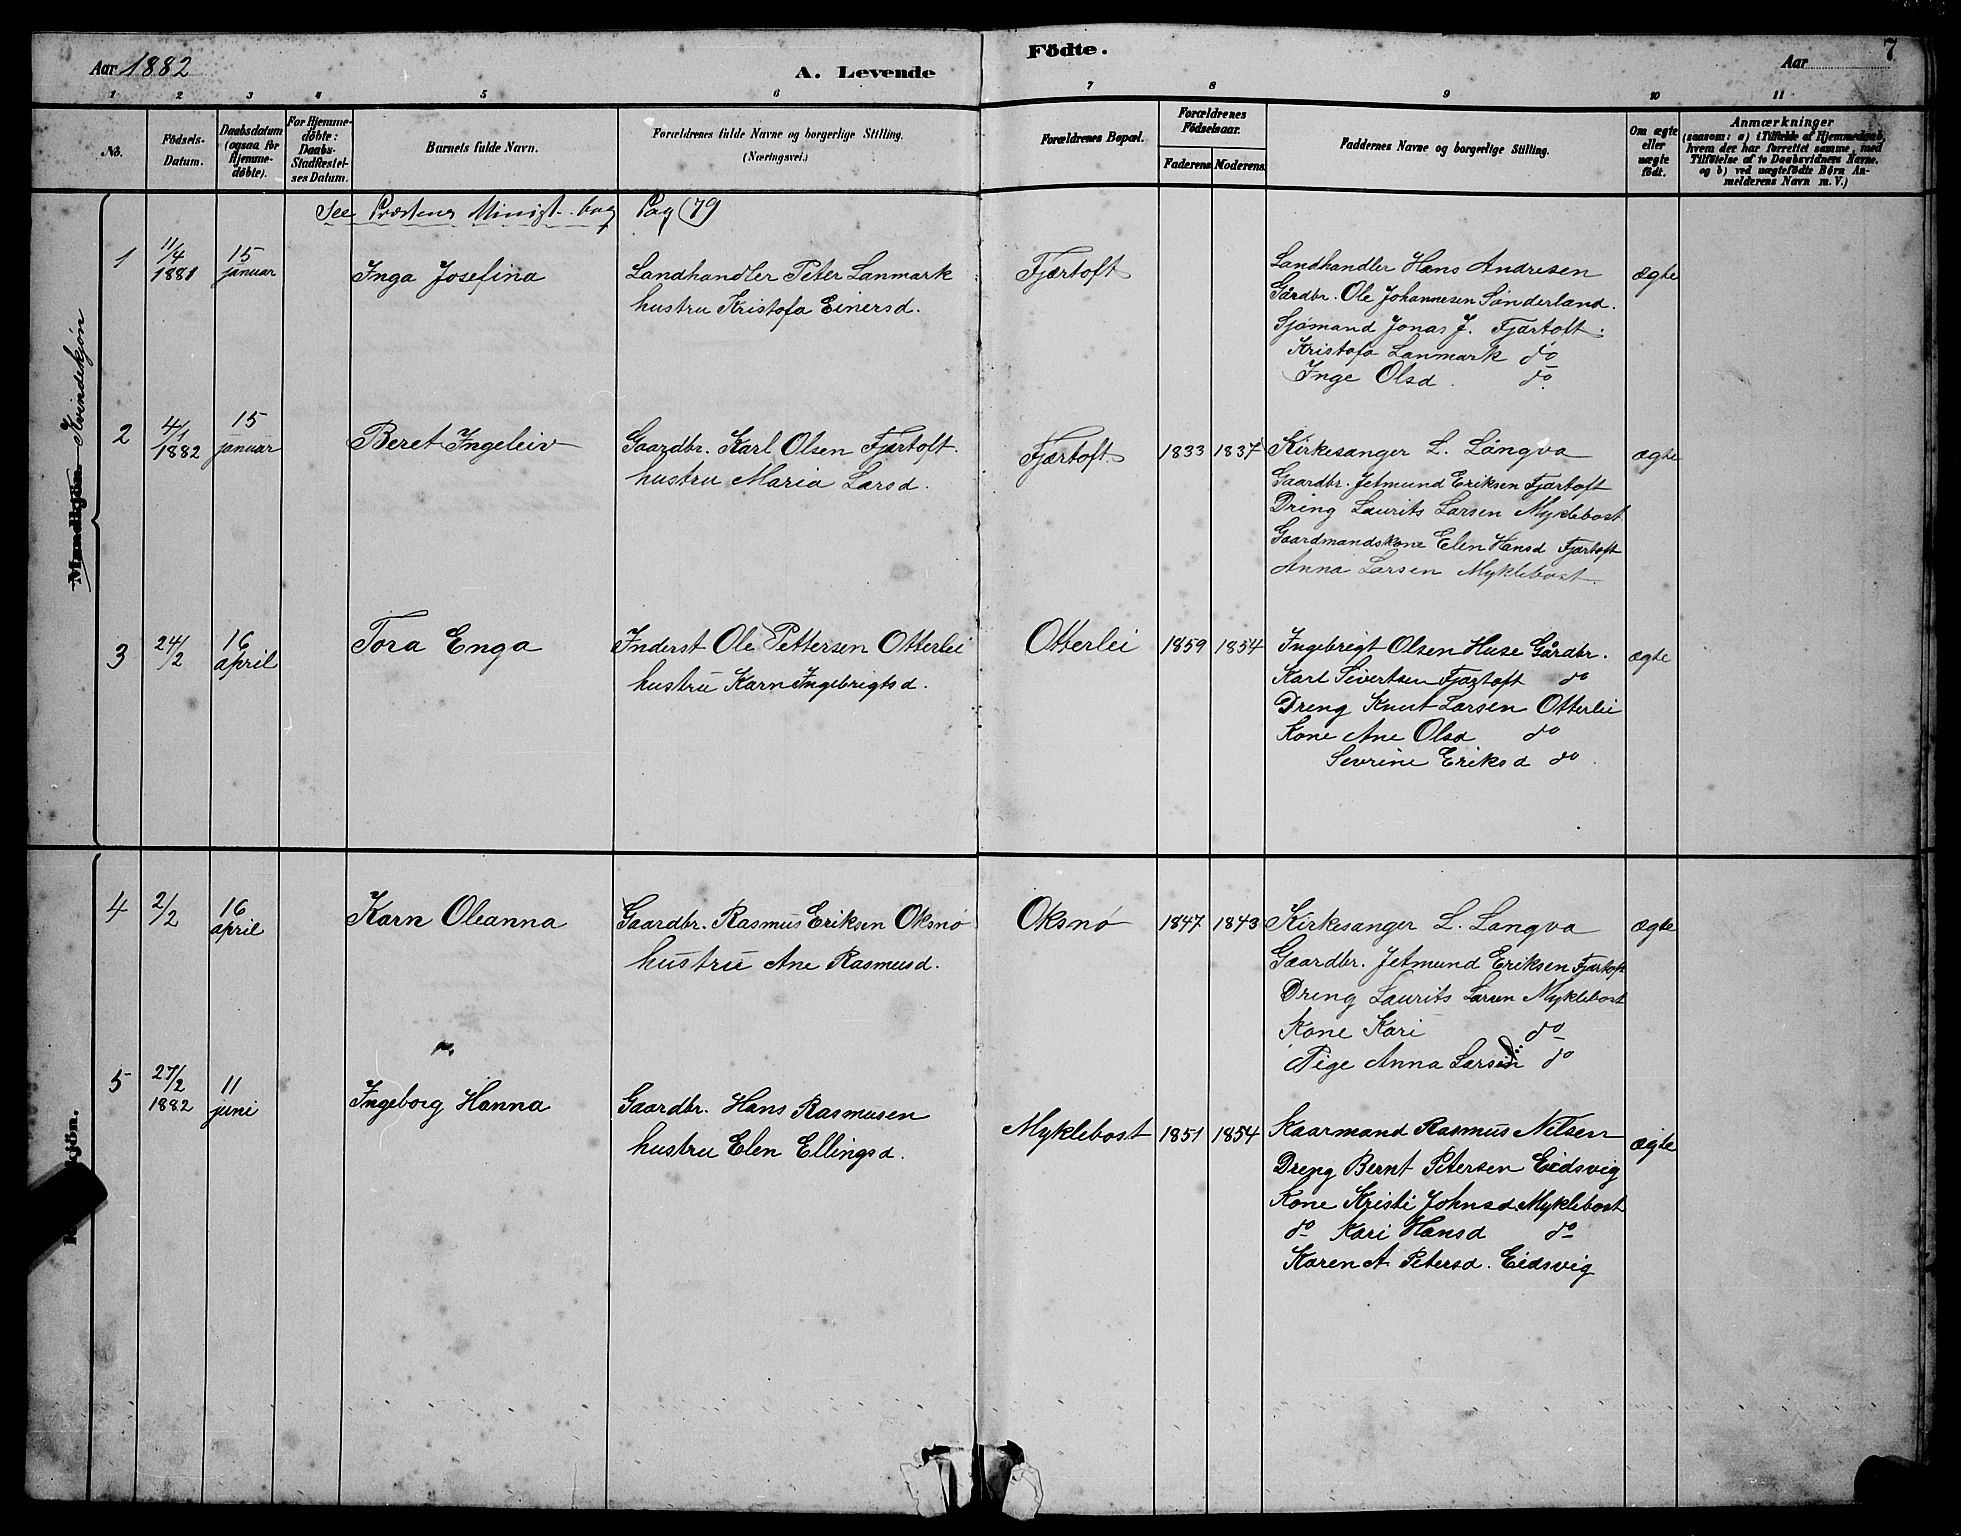 Aar 1882
A. Levende
Födte.
Aar
7
1 2 3 4 5 6 7 8 9 10 11
No.
Födsels-
Datum.
Daabsdatum
(ogsaa for
Hjemme-
döbte).
For Hjemme-
döbte:
Daabs-
Stadfæstel-
ses Datum.
Barnets fulde Navn.
Forældrenes fulde Navne og borgerlige Stilling.
(Næringsvei.)
Forældrenes Bopæl.
Forældrenes
Födselsaar.
Faderens Moderens
Faddernes Navne og borgerlige Stilling.
Om ægte
eller
uægte
födt.
Anmærkninger
(saasom: a) i Tilfælde af Hjemmedaab,
hvem der har forrettet samme, med
Tilföielse af to Daabsvidners Navne.
og b) ved uægtefödte Börn An-
melderens Navn m. V.)
Mandkjön Kvindeskjøn
See Præstens Minist. bog Pag (79
1
11/4
1881
15
januar
Inga Josefina
Landhandler Peter Lanmark
hustru Kristofa Einersd.
Fjærtoft
Landhandler Hans Andresen
Gårdbr. Ole Johannesen Sønderland.
Sjømand Jonas J. Fjærtoft.
Kristofa Lanmark do
Inge Olsd. do
ægte
2
4/1
1882
15
januar
Beret Ingeleiv
Gaardbr. Karl Olsen Fjærtoft.
hustru Maria Larsd.
Fjærtoft
1833 1837
Kirkesanger L. Langva
Gaardbr. Jetmund Eriksen Fjærtoft
Dring Laurits Larsen Myklebost
Gaardmandskone Elen Hansd Fjærtoft
Anna Larsen Myklebost.
ægte
3
24/2
16
april
Tora Enga
Inderst Ole Pettersen Otterlei
hustru Karn Ingebrigtsd.
Otterlei
1859 1854
Ingebrigt Olsen Huse Gårdbr.
Karl Sivertsen Fjærtoft do
Dreng Knut Larsen Otterlei
Kone Ane Olsd do
Sevrine Eriksd do.
ægte
4
2/2
16
april
Karn Oleanna
Gaardbr. Rasmus Eriksen Oksnø
hustru Ane Rasmusd.
Oksnø
1847 1843
Kirkesanger L. Langva
Gaardbr. Jetmund Eriksen Fjærtoft
Dreng Laurits Larsen Myklebost
Kone Kari do
Pige Anna Larsd. do
ægte
5
27/2
1882
11
juni
Ingeborg Hanna
Gaardbr. Hans Rasmusen
hustru Elen Ellingsd.
Myklebost
1851 1854
Kaarmand Rasmus Nilsen
Dreng Bernt Petersen Eidsvig
Kone Kristi Johnsd. Myklebost
do Kari Hansd do
Karen A Petersd. Eidsvig
ægte
kjön.